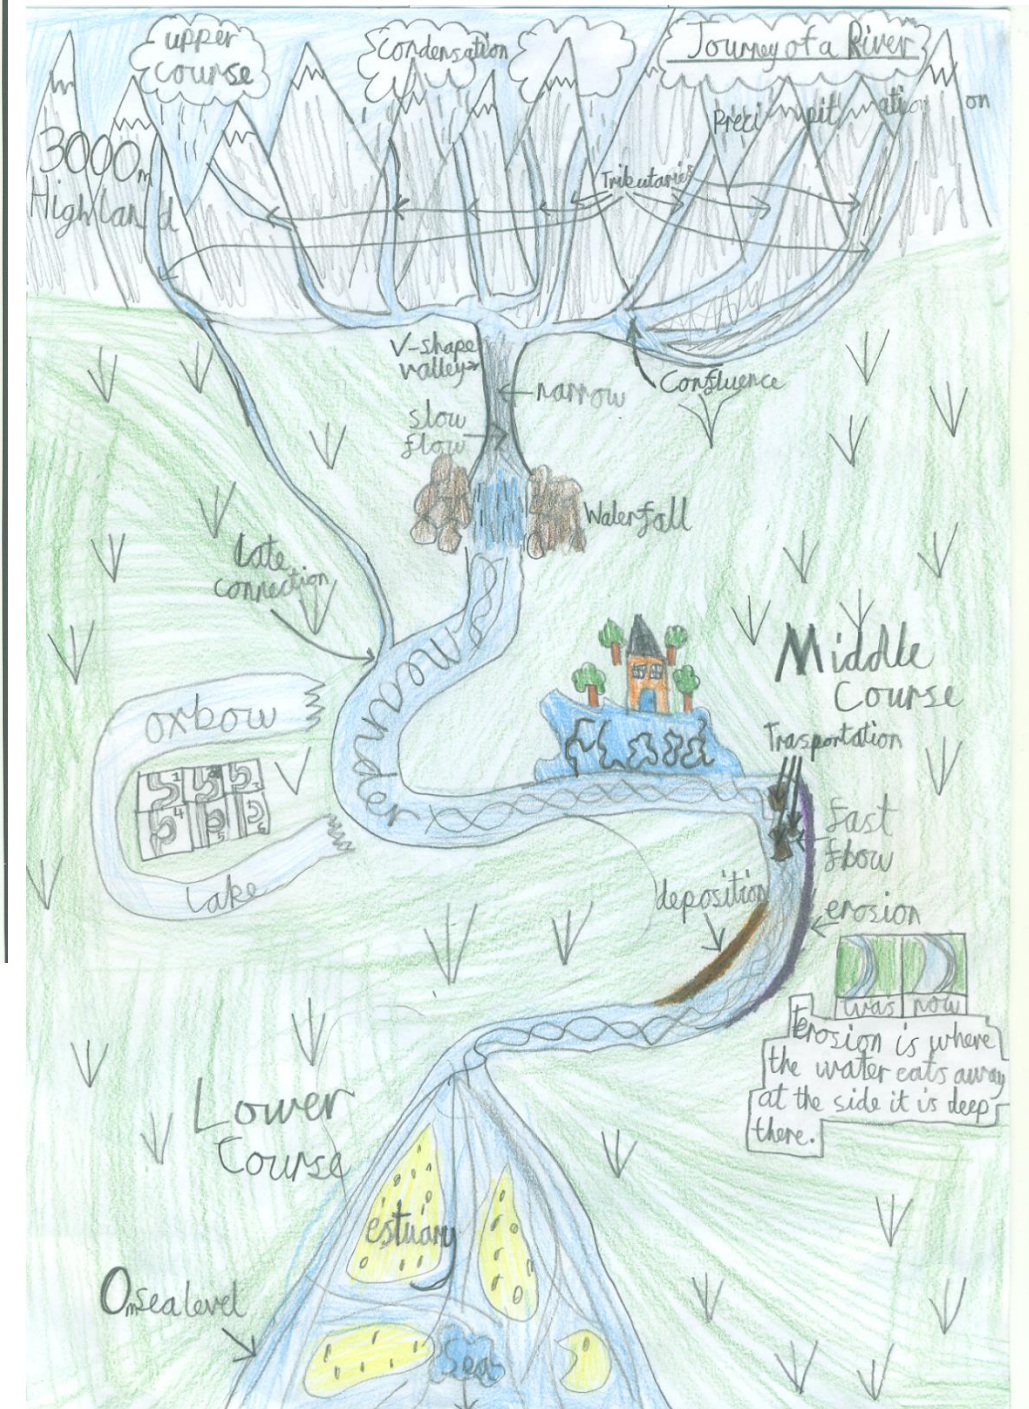 upper
course
Condensation
Journey of a River
Precipitation
on
3000m
Highland
Tributaries
V-shape
valley
narrow
Confluence
slow
flow
Waterfall
Late
connection
meander
Middle
Course
oxbow
Flood
Trasportation
1 2 3
4 5 6
fast
flow
lake
deposition
erosion
was now
Erosion is where
the water eats away
at the side it is deep
there.
Lower
Course
estuary
0m sea level
Sea